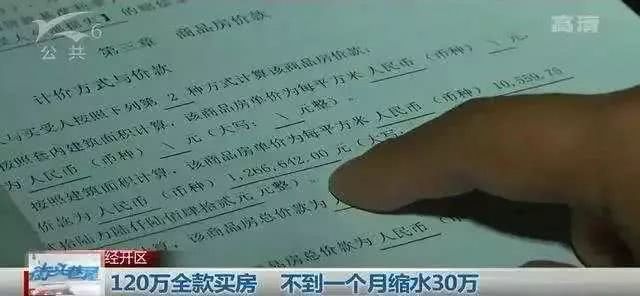 6
公共
高清
第三章 商品房价款
计价方式与价款
人与买受人按照下列第 2 种方式计算该商品房价款:
按照套内建筑面积计算,该商品房单价为每平方米 人民币 (币种) \ 元
为 人民币 (币种) \ 元(大写: \ 元整)。
按照建筑面积计算,该商品房单价为每平方米 人民币 (币种) 10,559.75
价款为 人民币 (币种) 1,266,642.00 元(大写:
贰拾陆万陆仟陆佰肆拾贰元 元整)。
该商品房总价款为
商品房总价款为 人民币 (币种)
经开区
街头巷尾
120万全款买房 不到一个月缩水30万